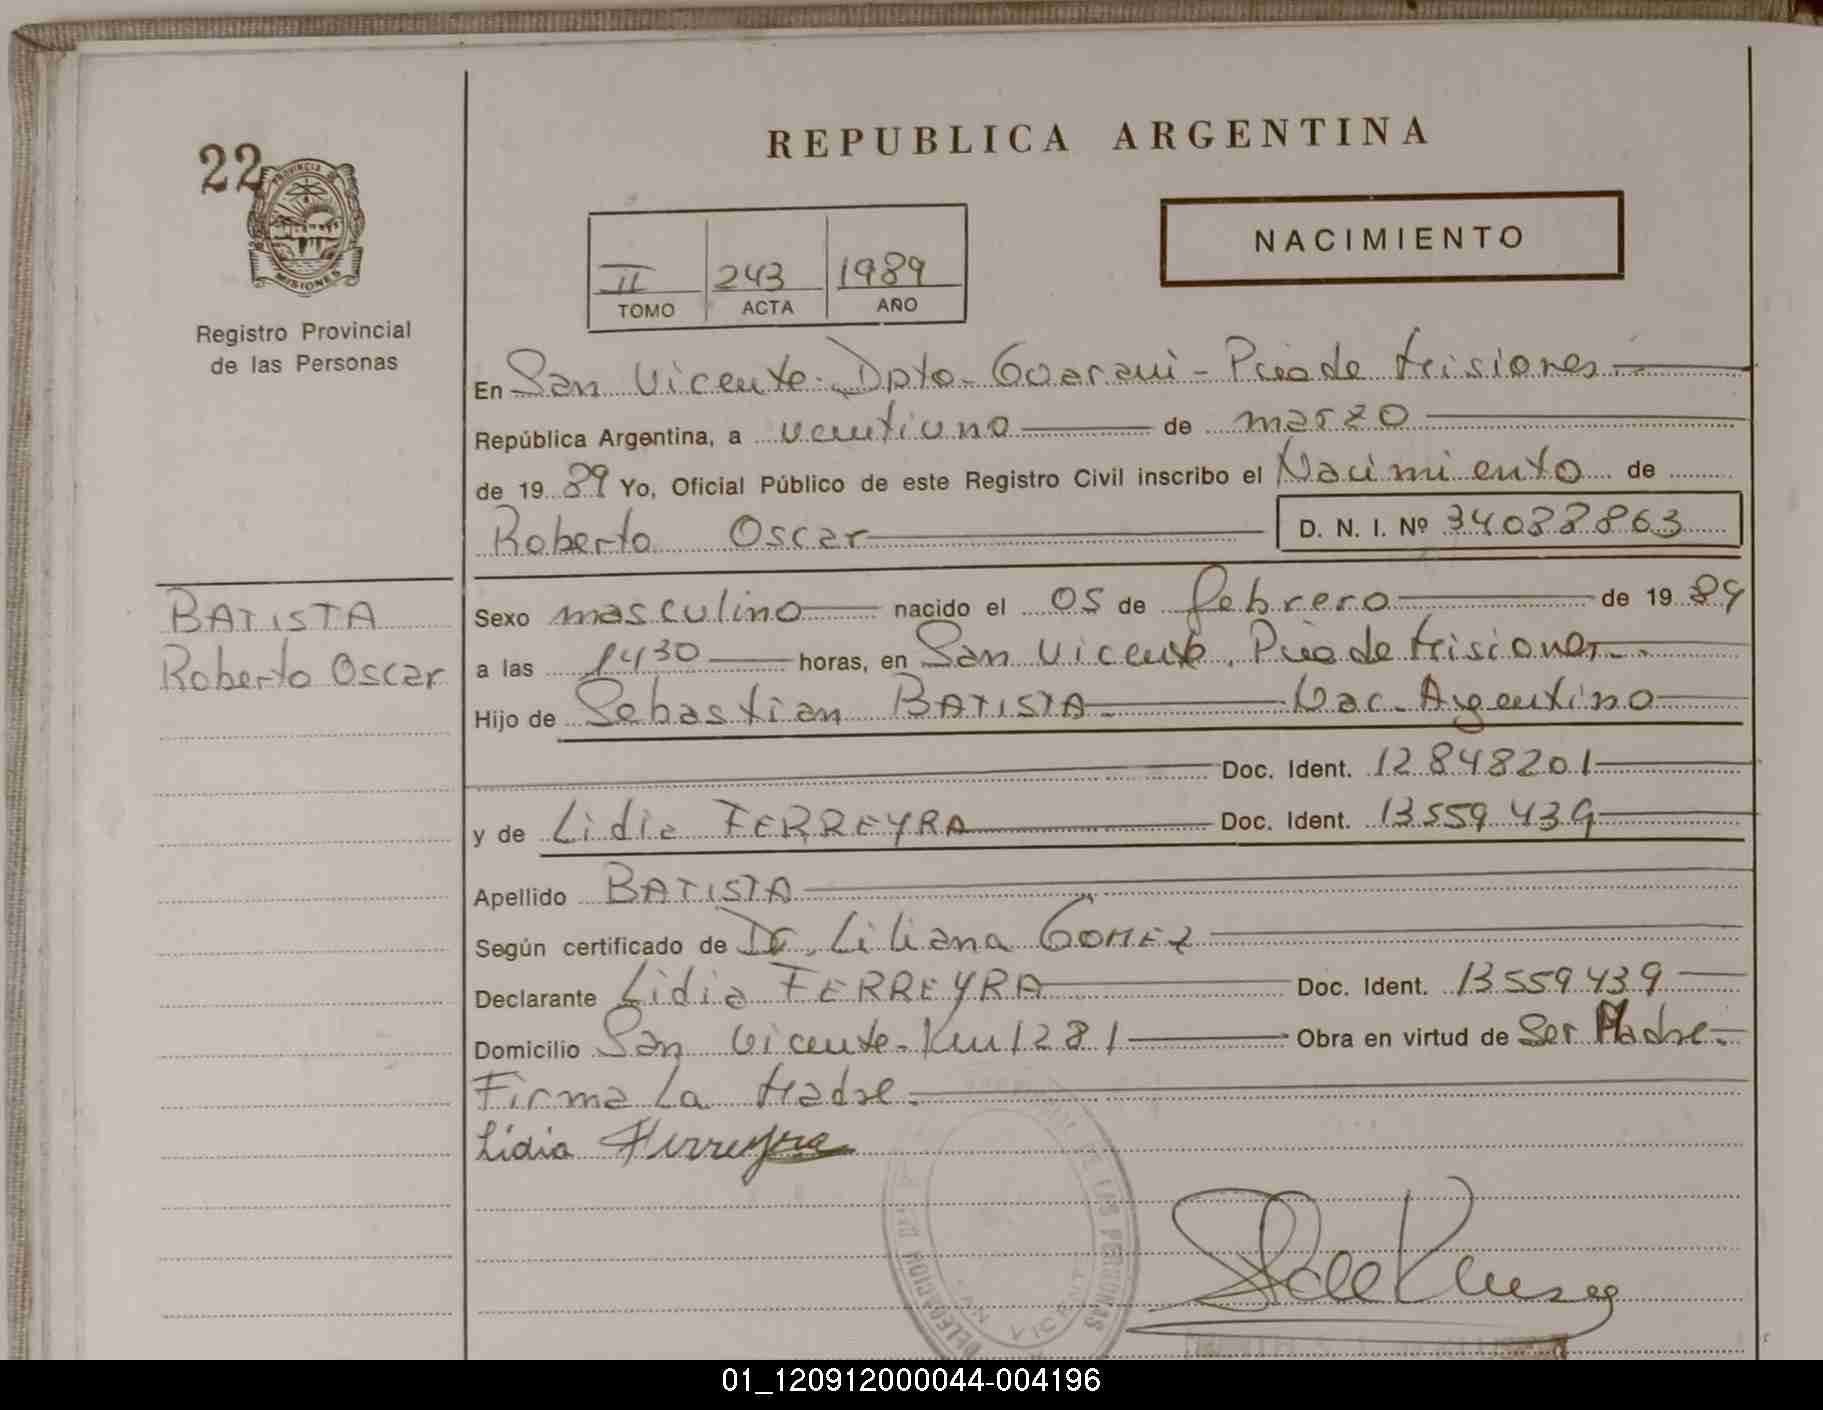 22
PROVINCIA DE
MISIONES
Registro Provincial
de las Personas
REPUBLICA ARGENTINA
NACIMIENTO
II 243 1989
TOMO ACTA AÑO
En San Vicente - Dpto - Guarani - Pcia de Misiones -
República Argentina, a veintiuno de marzo
de 19 89 Yo, Oficial Público de este Registro Civil inscribo el Nacimiento de
Roberto Oscar D. N. I. Nº 34088863
BATISTA
Roberto Oscar
Sexo masculino nacido el 05 de febrero de 19 89
a las 1430 horas, en San Vicente, Pcia de Misiones -
Hijo de Sebastian BATISTA - Nac. Argentino
Doc. Ident. 12848201
y de Lidia FERREYRA Doc. Ident. 13559439
Apellido BATISTA
Según certificado de Dr. Liliana GOMEZ
Declarante Lidia FERREYRA Doc. Ident. 13559439
Domicilio San Vicente - Km 1281 Obra en virtud de Ser Madre -
Firma La Madre -
Lidia Ferreyra
DE LAS PERSONAS
DELEGACION
01_120912000044-004196